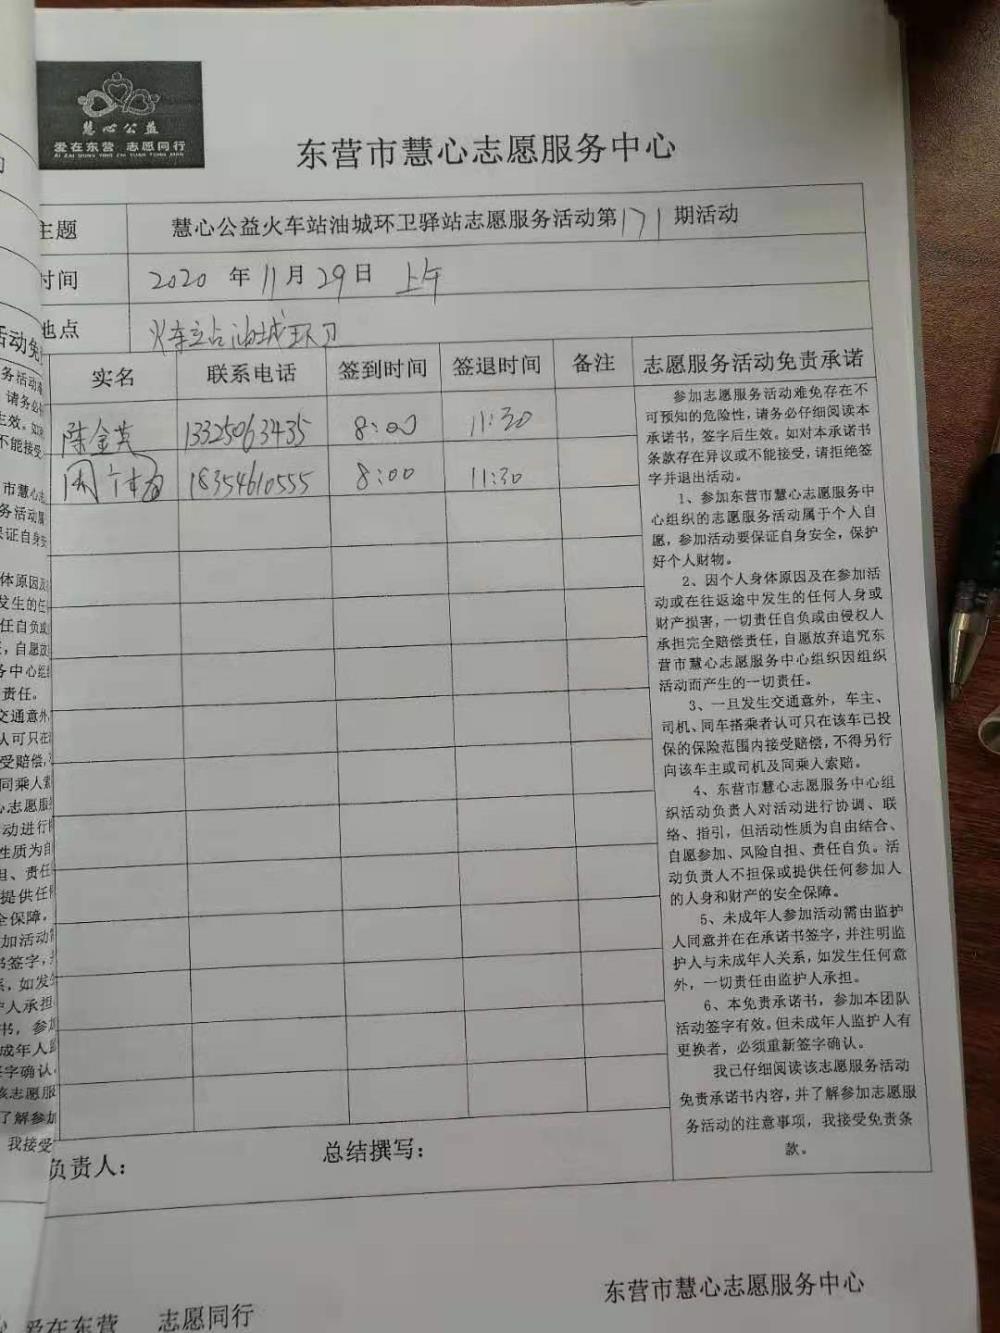 慧心公益
爱在东营 志愿同行
AI ZAI DONG YING ZHI YUAN TONG XING
东营市慧心志愿服务中心
主题 慧心公益火车站油城环卫驿站志愿服务活动第171期活动
时间 2020年11月29日 上午
地点 火车站油城环卫
实名 联系电话 签到时间 签退时间 备注 志愿服务活动免责承诺
陈金英 13325063435 8:00 11:30
周 18354610555 8:00 11:30
参加志愿服务活动难免存在不
可预知的危险性，请务必仔细阅读本
承诺书，签字后生效。如对本承诺书
条款存在异议或不能接受，请拒绝签
字并退出活动。
1、参加东营市慧心志愿服务中
心组织的志愿服务活动属于个人自
愿，参加活动要保证自身安全，保护
好个人财物。
2、因个人身体原因及在参加活
动或在往返途中发生的任何人身或
财产损害，一切责任自负或由侵权人
承担完全赔偿责任，自愿放弃追究东
营市慧心志愿服务中心组织因组织
活动而产生的一切责任。
3、一旦发生交通意外，车主、
司机、同车搭乘者认可只在该车已投
保的保险范围内接受赔偿，不得另行
向该车主或司机及同乘人索赔。
4、东营市慧心志愿服务中心组
织活动负责人对活动进行协调、联
络、指引，但活动性质为自由结合、
自愿参加、风险自担、责任自负。活
动负责人不担保或提供任何参加人
的人身和财产的安全保障。
5、未成年人参加活动需由监护
人同意并在在承诺书签字，并注明监
护人与未成年人关系，如发生任何意
外，一切责任由监护人承担。
6、本免责承诺书，参加本团队
活动签字有效。但未成年人监护人有
更换者，必须重新签字确认。
我已仔细阅读该志愿服务活动
免责承诺书内容，并了解参加志愿服
务活动的注意事项，我接受免责条
款。
负责人： 总结撰写：
东营市慧心志愿服务中心
爱在东营 志愿同行